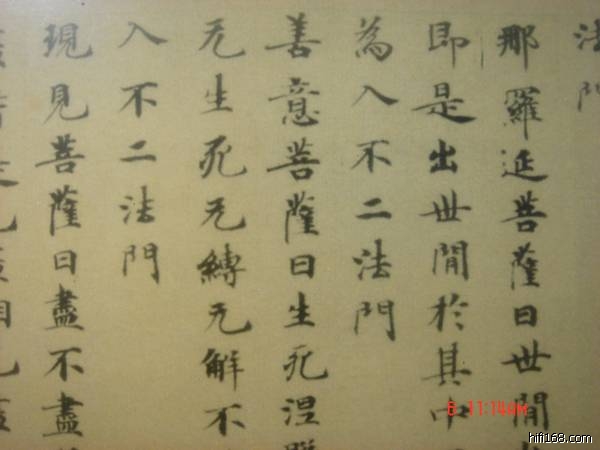 法門
那羅延菩薩曰世間
即是出世間於其中
為入不二法門
善意菩薩曰生死涅
无生死无縛无解不
入不二法門
現見菩薩曰盡不盡
8 11:14AM
hifi168.com